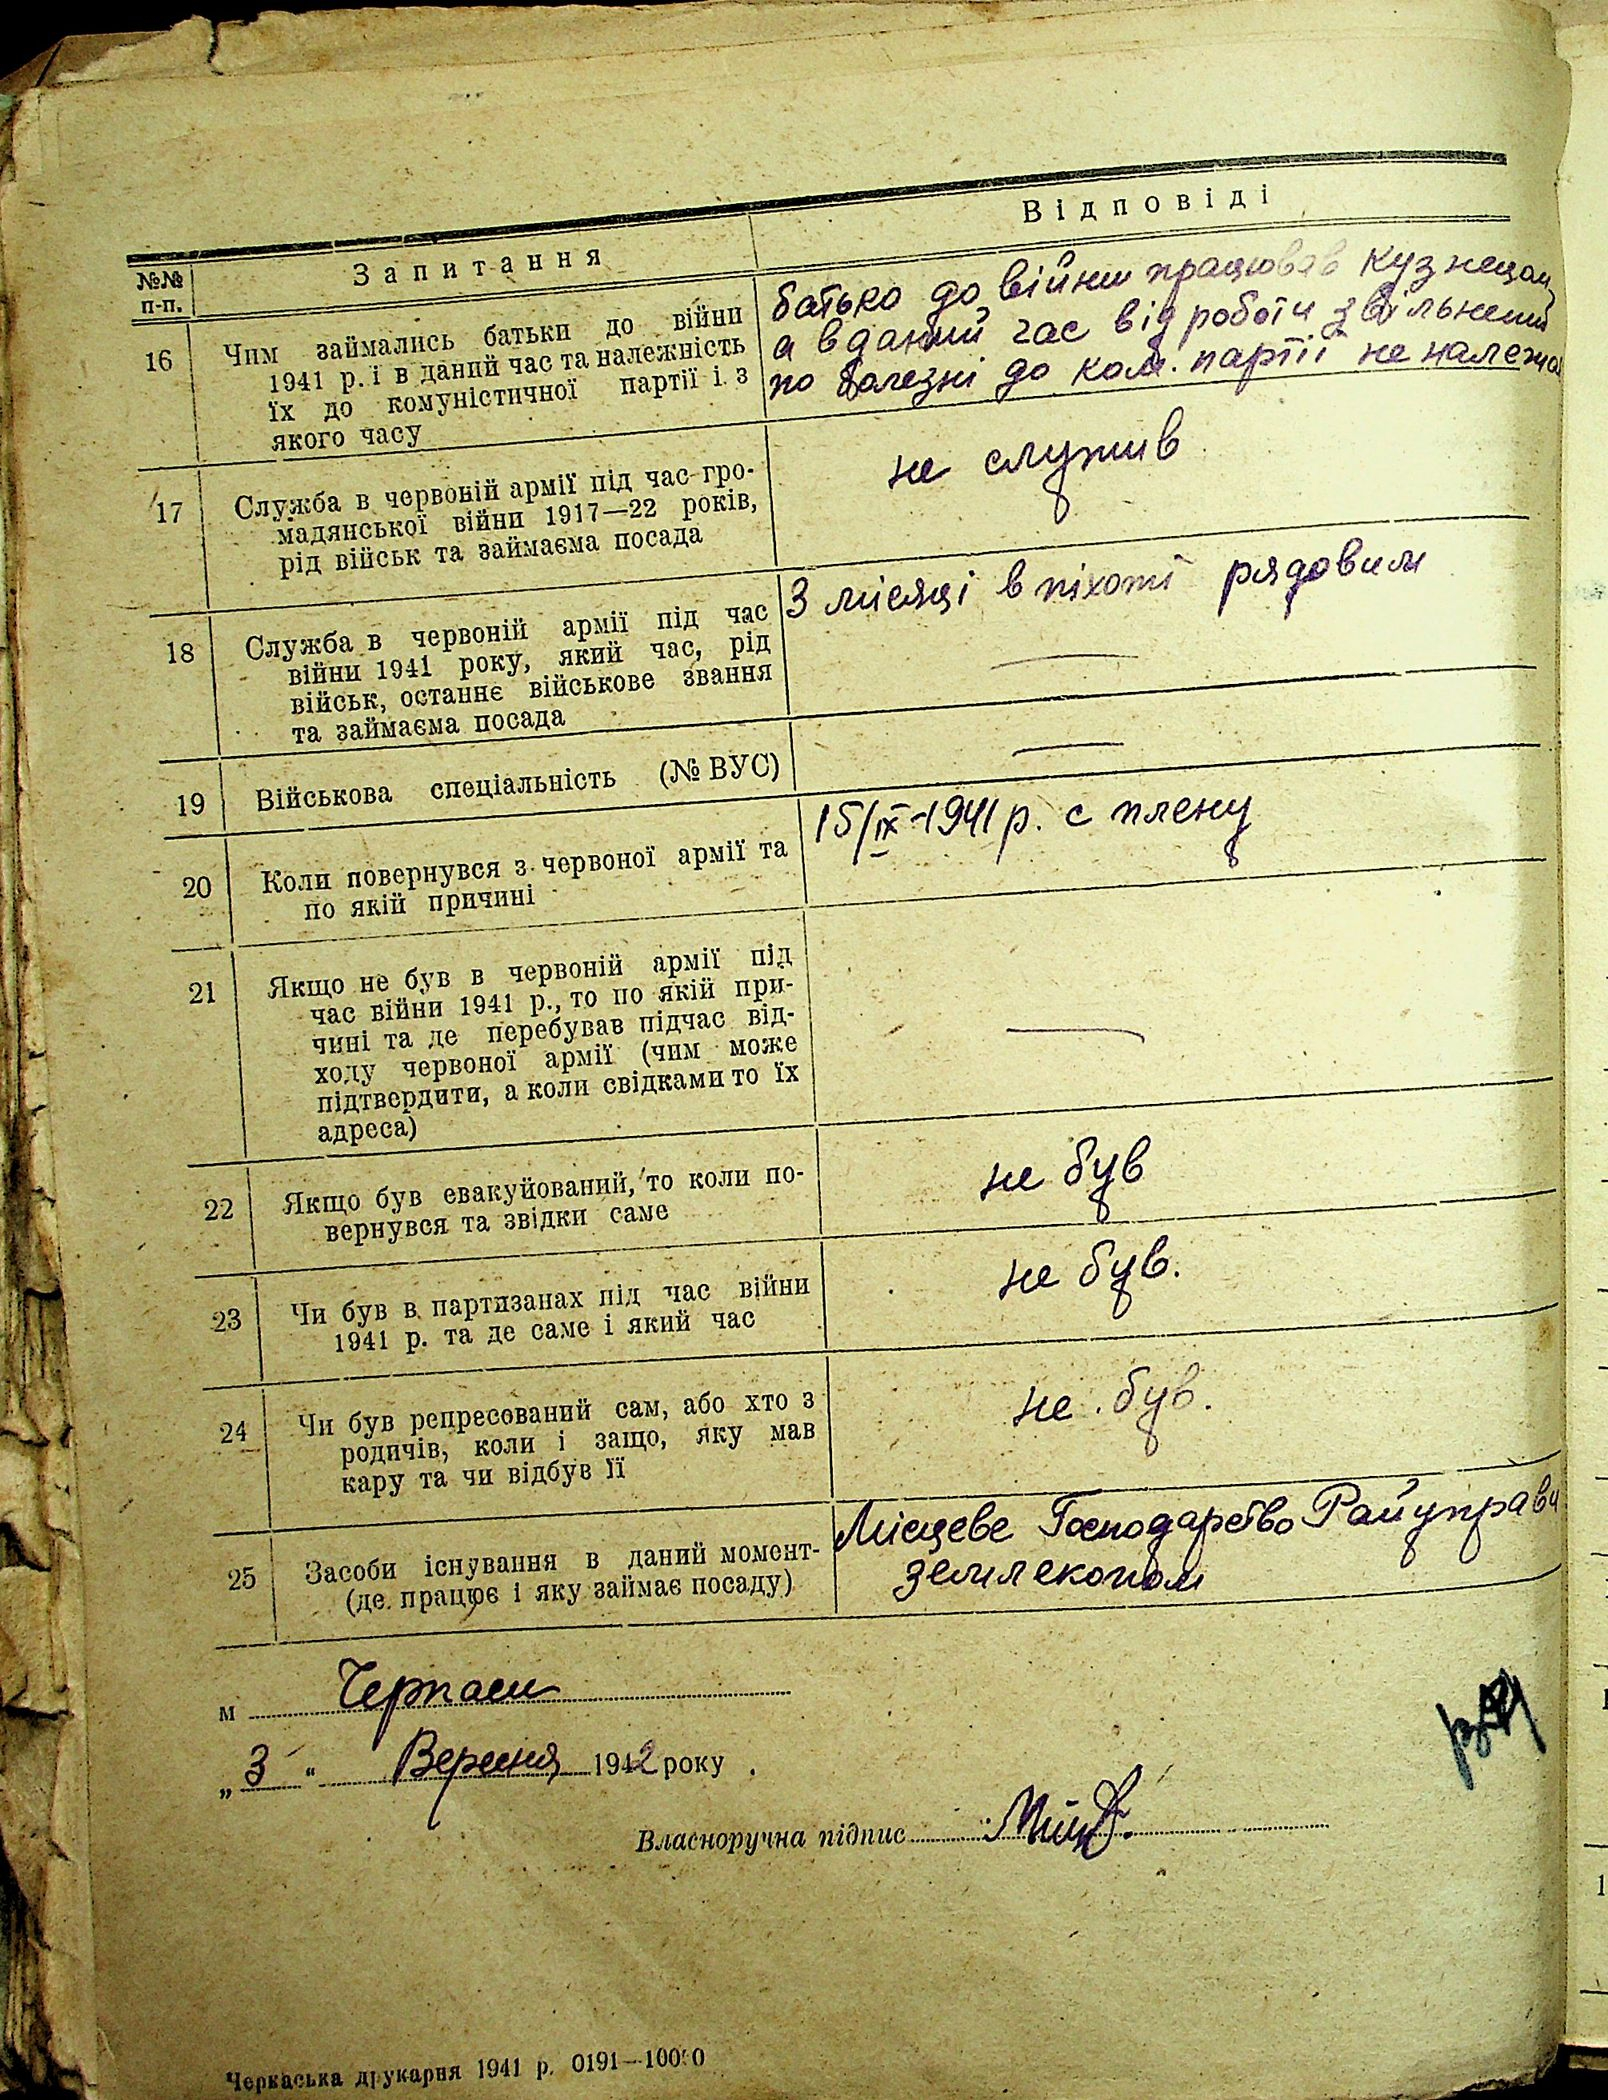 №№ п-п.
Запитання
Відповіді
16
Чим займались батьки до війни
1941 р. і в даний час та належність
їх до комуністичної партії і з
якого часу
батько до війни працював кузнецом,
а в даний час від роботи звільнений
по болезні до ком. партії не належав
17
Служба в червоній армії під час гро-
мадянської війни 1917—22 років,
рід військ та займаєма посада
не служив
18
Служба в червоній армії під час
війни 1941 року, який час, рід
військ, останнє військове звання
та займаєма посада
3 місяці в піхоті рядовим
—
19
Військова спеціальність (№ ВУС)
—
20
Коли повернувся з червоної армії та
по якій причині
15/IX-1941 р. с плену
21
Якщо не був в червоній армії під
час війни 1941 р., то по якій при-
чині та де перебував підчас від-
ходу червоної армії (чим може
підтвердити, а коли свідками то їх
адреса)
—
22
Якщо був евакуйований, то коли по-
вернувся та звідки саме
не був
23
Чи був в партизанах під час війни
1941 р. та де саме і який час
не був.
24
Чи був репресований сам, або хто з
родичів, коли і защо, яку мав
кару та чи відбув її
не був.
25
Засоби існування в даний момент-
(де працює і яку займає посаду)
Місцеве Господарство Райуправи
землекопом
м Черкаси
„3“ Вересня 1942 року
Власноручна підпис
Черкаська друкарня 1941 р. 0191—10000